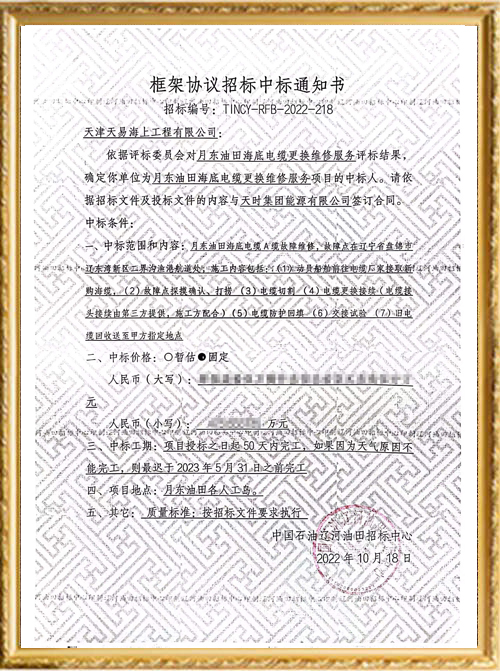 框架协议招标中标通知书
招标编号：TINCY-RFB-2022-218
天津天易海上工程有限公司：
依据评标委员会对月东油田海底电缆更换维修服务评标结果，
确定你单位为月东油田海底电缆更换维修服务项目的中标人。请依
据招标文件及投标文件的内容与天时集团能源有限公司签订合同。
中标条件：
一、中标范围和内容：月东油田海底电缆A缆故障维修，故障点在辽宁省盘锦市
辽东湾新区二界沟渔港航道处，施工内容包括：（1）动员船舶前往电缆厂家接取新
购海缆，（2）故障点探摸确认、打捞（3）电缆切割（4）电缆更换接续（电缆接
头接续由第三方提供，施工方配合）（5）电缆防护回填（6）交接试验（7）旧电
缆回收送至甲方指定地点
二、中标价格：○暂估●固定
人民币（大写）：
元
人民币（小写）：万元
三、中标工期：项目投标之日起50天内完工，如果因为天气原因不
能完工，则最迟于2023年5月31日之前完工
四、项目地点：月东油田各人工岛。
五、其它：质量标准：按招标文件要求执行
中国石油辽河油田招标中心
2022年10月18日